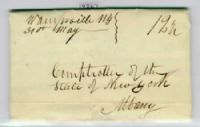 Wampsville NY
30th May
12½
Comptroller of the
State of New York
Albany